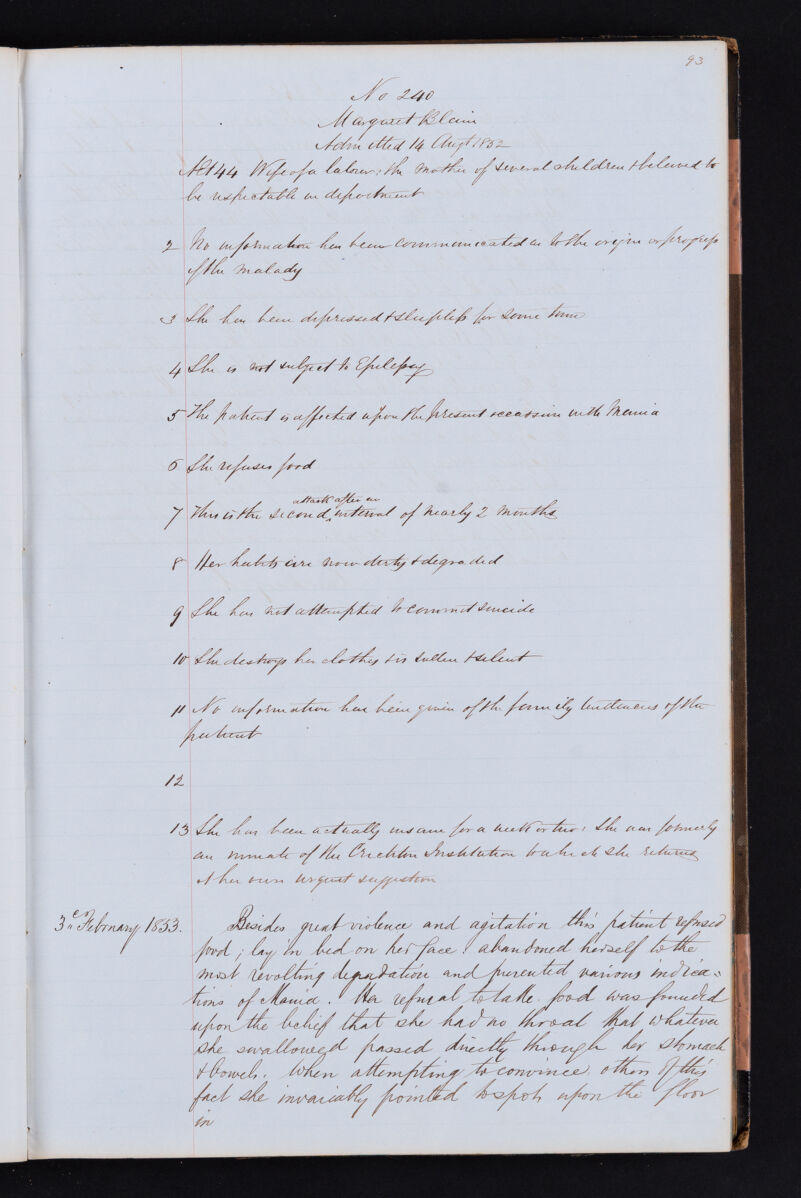 93
No 240
Margaret Blain
Admitted 14 Augt 1852
Aet 44 Wife of a laborer: the mother of several children & believed to
be respectable in deportment
2 No information has been communicated as to the origin or progress
of the malady
3 She has been depressed & sleepless for some time
4 She is not subject to Epilepsy
5 The patient is affected upon the present occassion with Mania
6 She refuses food
attack after an
7 This is the second interval of nearly 2 months
8 Her habits are now dirty & degraded
9 She has not attempted to commit suicide
10 She destroys her clothes & is sullen & silent
11 No information has been given of the family tendencies of the
patient
12
13 She has been actually insane for a week or two: She was formerly
an inmate of the Crichton Institution to which she returns
at her own urgent suggestion
3d February 1853. Besides great violence and agitation this patient refused
food; lay in bed on her face: abandoned herself to the
most revolting degradation and presented various indica-
tions of Mania. Her refusal to take food was founded
upon the belief that she had no throat that whatever
she swallowed passed directly through her stomach
& bowels. When attempting to convince others of this
fact she invariably pointed to spots upon the floor
in